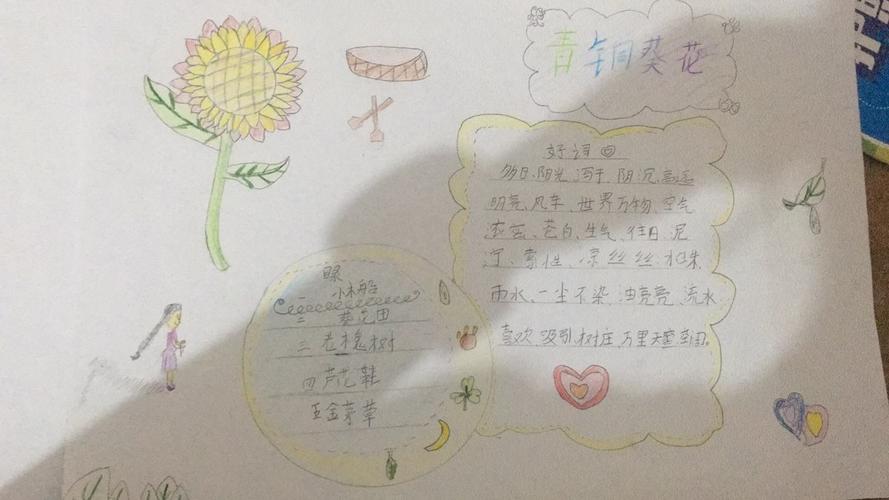 青铜葵花
好词
多日、阳光、泻于、阴沉、高远
明亮、风车、世界万物、空气
苍白、生气、往日、泥
泞、索性、凉丝丝、水珠
雨水、一尘不染、油亮亮、流水
喜欢、吸引、树庄、万里天空
小木船
二 葵花田
三 老槐树
四 芦花鞋
五 金茅草